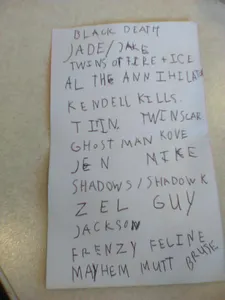 BLACK DEATH
JADE/JAKE
TWINS OF FIRE + ICE
AL THE ANNIHILATOR
KENDELL KILLS.
TIIN. TWINSCAR
GHOST MAN KOVE
JEN MIKE
SHADOWS/SHADOW K
ZEL GUY
JACKSON
FRENZY FELINE
MAYHEM MUTT BRUSE